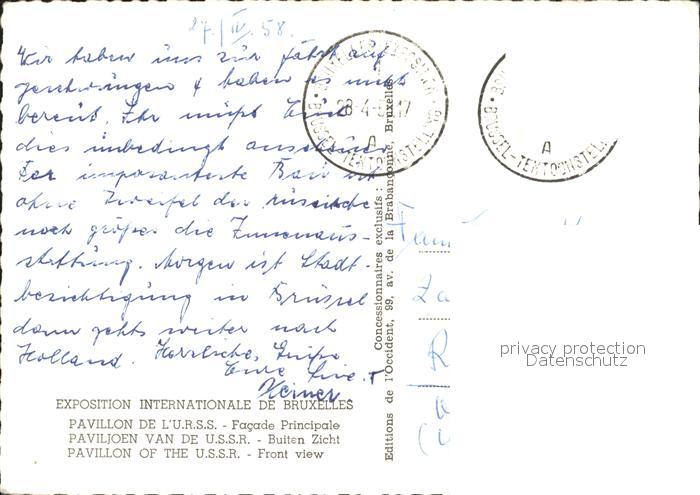 27./IV. 58.
Wir haben uns zur Fahrt auf
geschwungen & haben es nicht
bereut. Ihr müßt Euch
dies unbedingt anschauen
Der imposanteste Bau ist
ohne Zweifel der russische
noch größer die Innenaus-
stattung. Morgen ist Stadt-
besichtigung in Brüssel
dann gehts weiter nach
Holland. Herzliche Grüße
Eure
Heiner
EXPOSITION INTERNATIONALE DE BRUXELLES
PAVILLON DE L'U.R.S.S. - Façade Principale
PAVILJOEN VAN DE U.S.S.R. - Buiten Zicht
PAVILLON OF THE U.S.S.R. - Front view
Concessionnaires exclusifs:
Editions de l'Occident, 99, av. de la Brabançonne, Bruxelles
28-4-
17
A
BRUSSEL-TENTOONSTELL
A
Fam
Za
R
privacy protection
Datenschutz